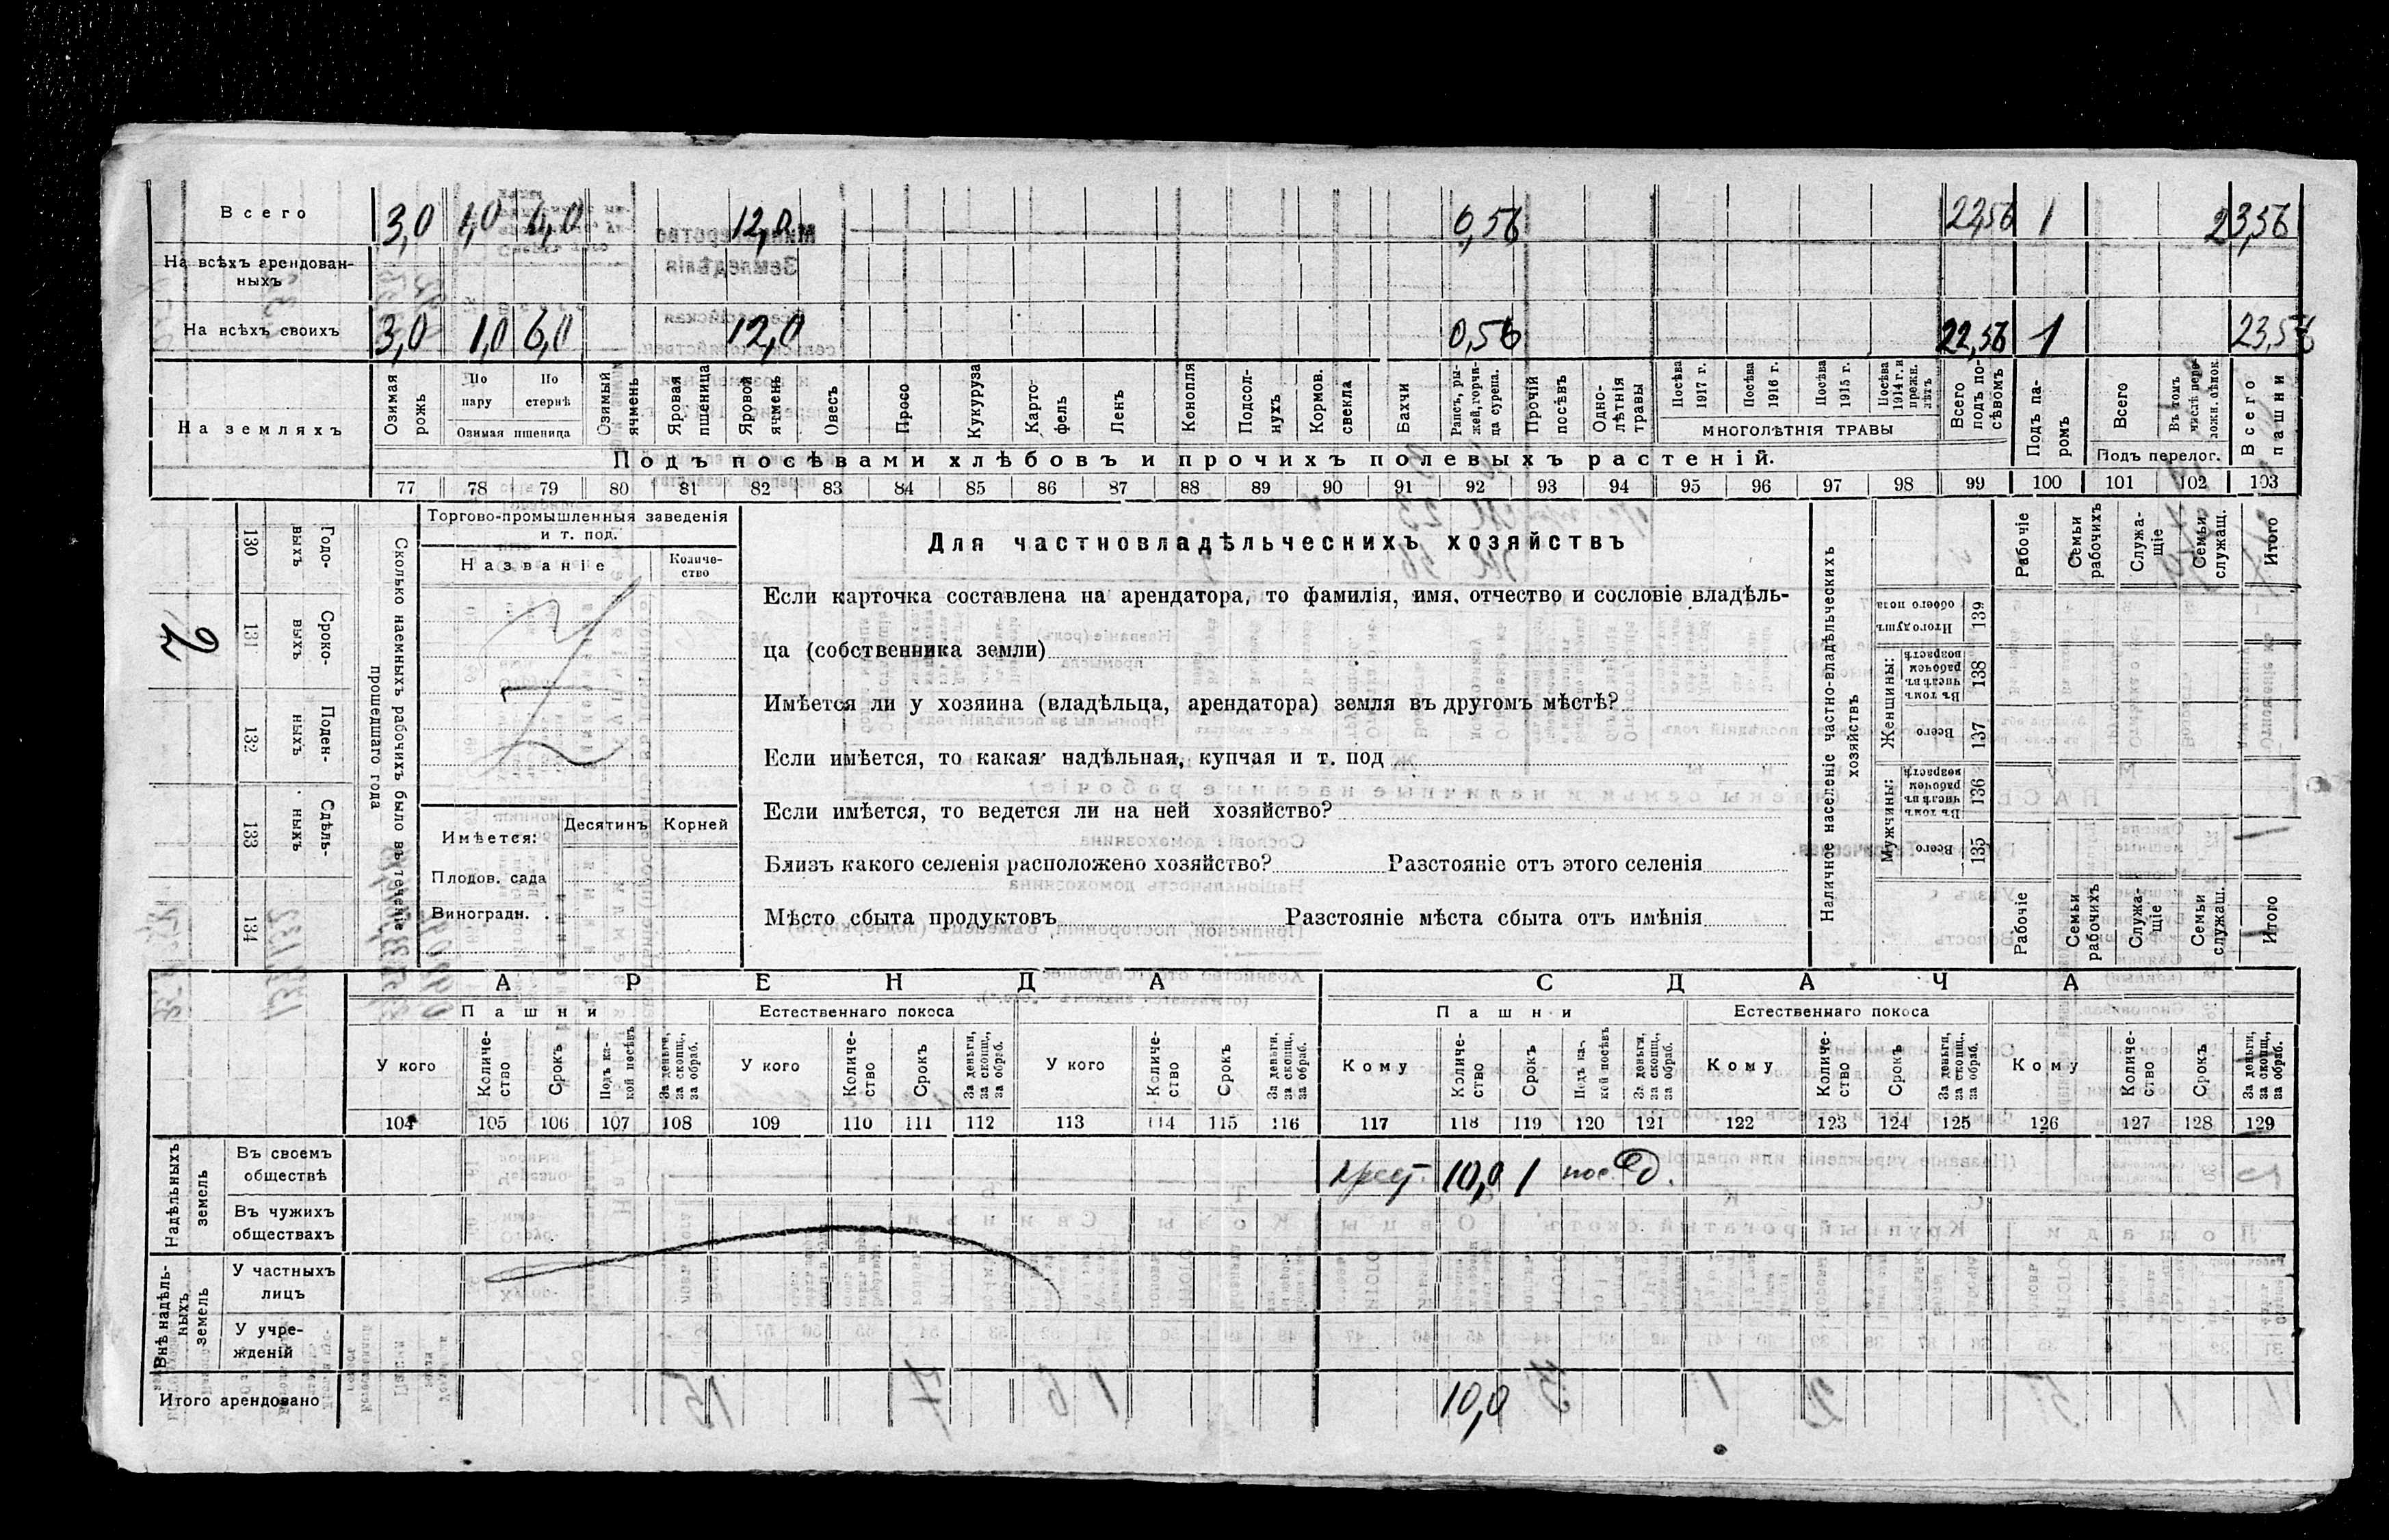 Всего 3,0 1,0 6,0 12,0 0,56 22,56 1 23,56
На всѣхъ арендован-
ныхъ
На всѣхъ своихъ 3,0 1,0 6,0 12,0 0,56 22,56 1 23,56
На земляхъ
Озимая рожь
По пару
По стернѣ
Озимая пшеница
Озимый ячмень
Яровая пшеница
Яровой ячмень
Овесъ
Просо
Кукуруза
Карто-
фель
Ленъ
Конопля
Подсол-
нухъ
Кормов. свекла
Бахчи
Рапсъ, ры-
жей, горчи-
ца сурепа.
Прочій посѣвъ
Одно-
лѣтнія травы
Посѣва 1917 г.
Посѣва 1916 г.
Посѣва 1915 г.
Посѣва 1914 г. и прежн. лѣтъ
МНОГОЛѢТНІЯ ТРАВЫ
Всего подъ по-
сѣвомъ
Подъ па-
ромъ
Всего
Въ томъ числѣ пере-
ложн. сѣнок.
Подъ перелог.
Всего пашни
Подъ посѣвами хлѣбовъ и прочихъ полевыхъ растеній.
77 78 79 80 81 82 83 84 85 86 87 88 89 90 91 92 93 94 95 96 97 98 99 100 101 102 103
2
130 131 132 133 134
Годо-
выхъ
Сроко-
выхъ
Поден-
ныхъ
Сдѣль-
ныхъ
Сколько наемныхъ рабочихъ было въ теченіе
прошедшаго года
Торгово-промышленныя заведенія
и т. под.
Названіе
Количе-
ство
Имѣется: Десятинъ Корней
Плодов. сада
Виноградн.
Для частновладѣльческихъ хозяйствъ
Если карточка составлена на арендатора, то фамилія, имя, отчество и сословіе владѣль-
ца (собственника земли)
Имѣется ли у хозяина (владѣльца, арендатора) земля въ другомъ мѣстѣ?
Если имѣется, то какая надѣльная, купчая и т. под
Если имѣется, то ведется ли на ней хозяйство?
Близъ какого селенія расположено хозяйство? Разстояніе отъ этого селенія
Мѣсто сбыта продуктовъ Разстояніе мѣста сбыта отъ имѣнія
Наличное населеніе частно-владѣльческихъ
хозяйствъ
Итого душъ обоего пола 139
Женщины:
Въ томъ числѣ въ рабочемъ возрастѣ 138
Всего 137
Мужчины:
Въ томъ числѣ въ рабочем возрастѣ 136
Всего 135
Рабочіе
Семьи рабочихъ
Служа-
щіе
Семьи служащ.
Итого
Рабочіе
Семьи рабочихъ
Служа-
щіе
Семьи служащ.
Итого
АРЕНДА СДАЧА
Пашни Естественнаго покоса Пашни Естественнаго покоса
У кого
Количе-
ство
Срокъ
Подъ ка-
кой посѣвъ
За деньги, за скопщ., за обраб.
У кого
Количе-
ство
Срокъ
За деньги, за скопщ., за обраб.
У кого
Количе-
ство
Срокъ
За деньги, за скопщ., за обраб.
Кому
Количе-
ство
Срокъ
Подъ ка-
кой посѣвъ
За деньги, за скопщ., за обраб.
Кому
Количе-
ство
Срокъ
За деньги, за скопщ., за обраб.
Кому
Количе-
ство
Срокъ
За деньги, за скопщ., за обраб.
104 105 106 107 108 109 110 111 112 113 114 115 116 117 118 119 120 121 122 123 124 125 126 127 128 129
Надѣльныхъ
земель
Въ своемъ
обществѣ
крест. 10,0 1
Въ чужихъ
обществахъ
Внѣ надѣль-
ныхъ
земель
У частныхъ
лицъ
У учре-
жденій
Итого арендовано 10,0